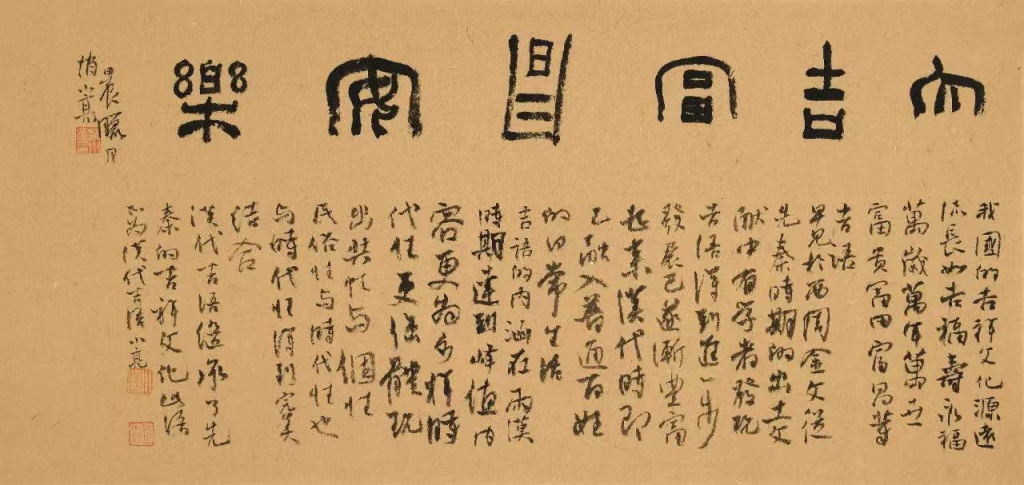 大吉富昌安樂
甲辰臘月
我國的吉祥文化源遠
流長如吉福壽永福
萬歲萬年萬世
富貴富田富昌等
吉語
早見於西周金文從
先秦時期的出土文
獻中有學者發現
吉語得到進一步
發展已逐漸豐富
起來漢代時即
已融入普通百姓
的日常生活
吉語的内涵在兩漢
時期達到峰值内
容更為多樣時
代性更強體現
出共性與個性
民俗性與時代性也
與時代性得到完美
結合
漢代吉語繼承了先
秦的吉祥文化此語
為漢代吉語小亮